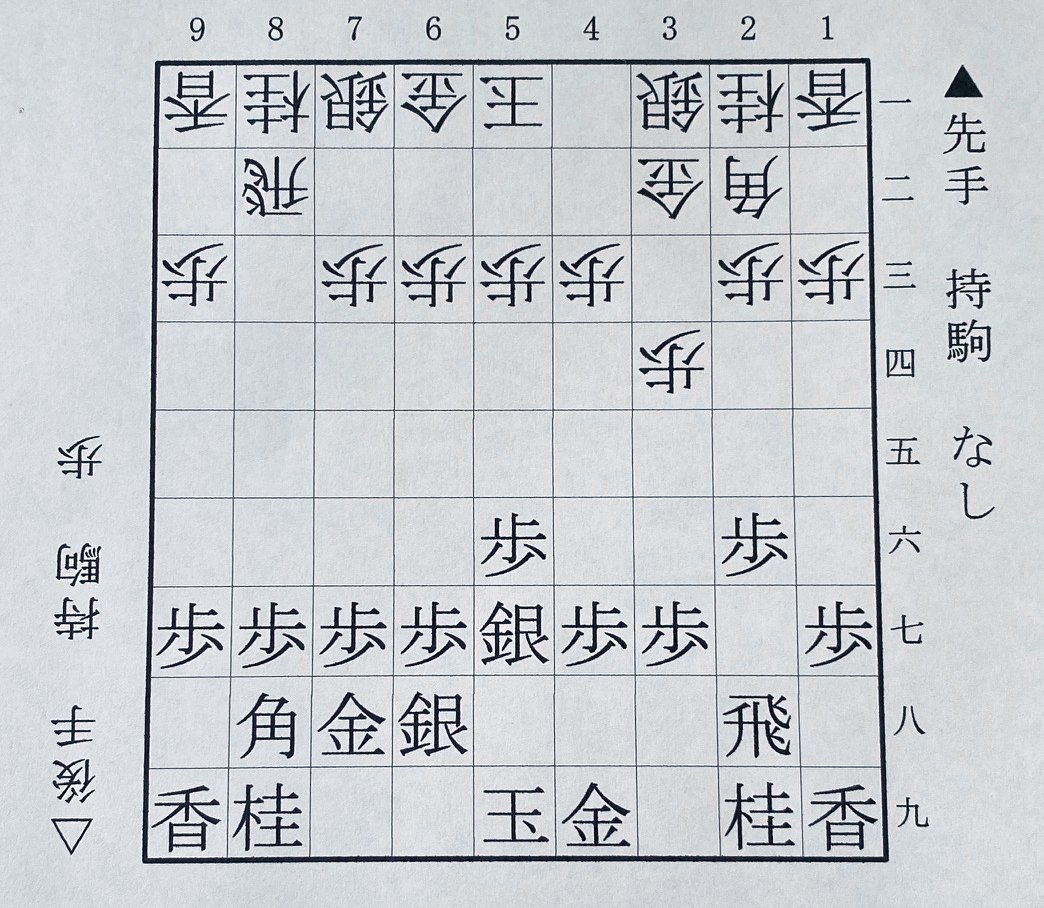 9 8 7 6 5 4 3 2 1
香 桂 銀 金 王 銀 桂 香 一
飛 金 角 二
歩 歩 歩 歩 歩 歩 歩 三
歩 四
五
歩 歩 六
歩 歩 歩 歩 銀 歩 歩 歩 七
角 金 銀 飛 八
香 桂 玉 金 桂 香 九
▲先手 持駒 なし
△後手 持駒 歩